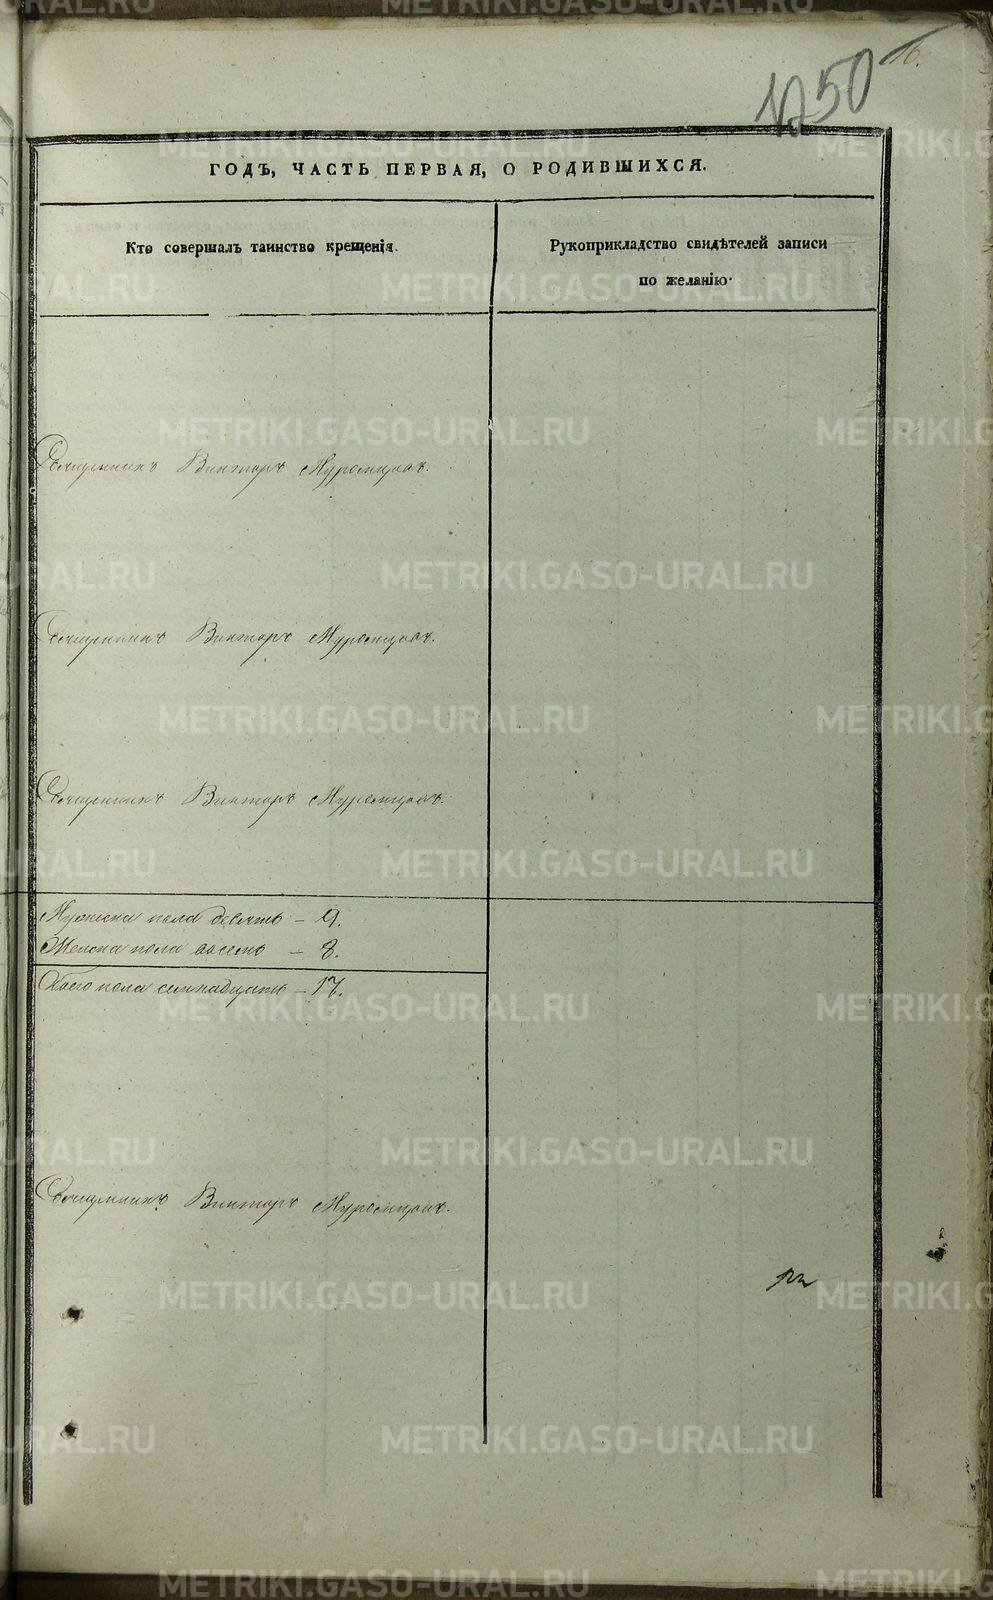 16.
1250
ГОДЪ, ЧАСТЬ ПЕРВАЯ, О РОДИВШИХСЯ.
Кто совершалъ таинство крещенія.
Рукоприкладство свидѣтелей записи
по желанію.
Священникъ Викторъ Муромцовъ.
Священникъ Викторъ Муромцовъ.
Священникъ Викторъ Муромцовъ.
Мужеска пола девять – 9.
Женска пола восемь – 8.
Обоего пола семнадцать – 17.
Священникъ Викторъ Муромцовъ.
METRIKI.GASO-URAL.RU